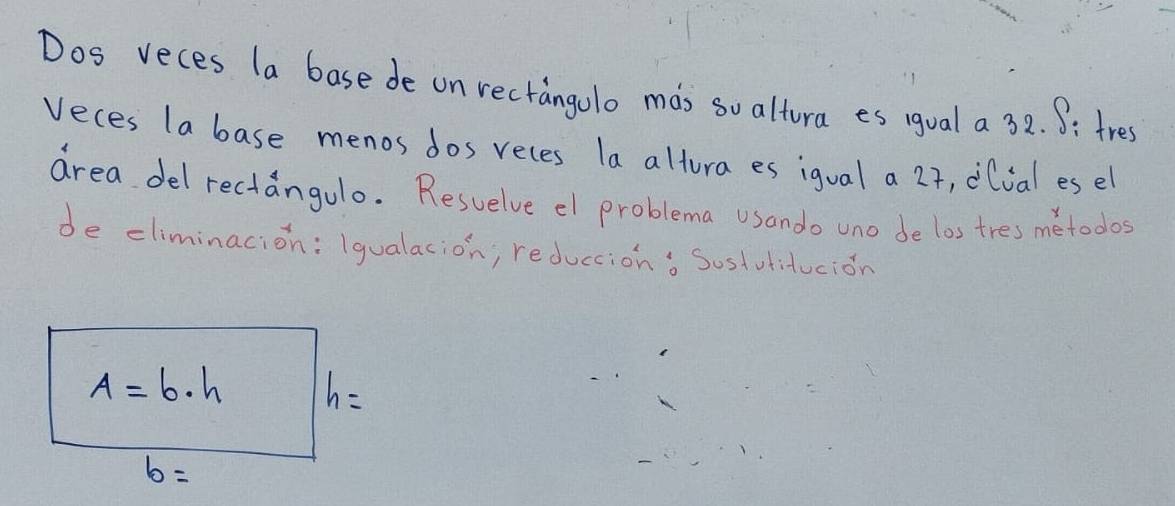 Dos veces la base de un rectángulo más su altura es igual a 32. Si tres
Veces la base menos dos veces la altura es igual a 27, ¿Cúal es el
área del rectángulo. Resuelve el problema usando uno de los tres métodos
de eliminación: Igualación, reducción ó Sustutitución
A = b.h
h =
b =